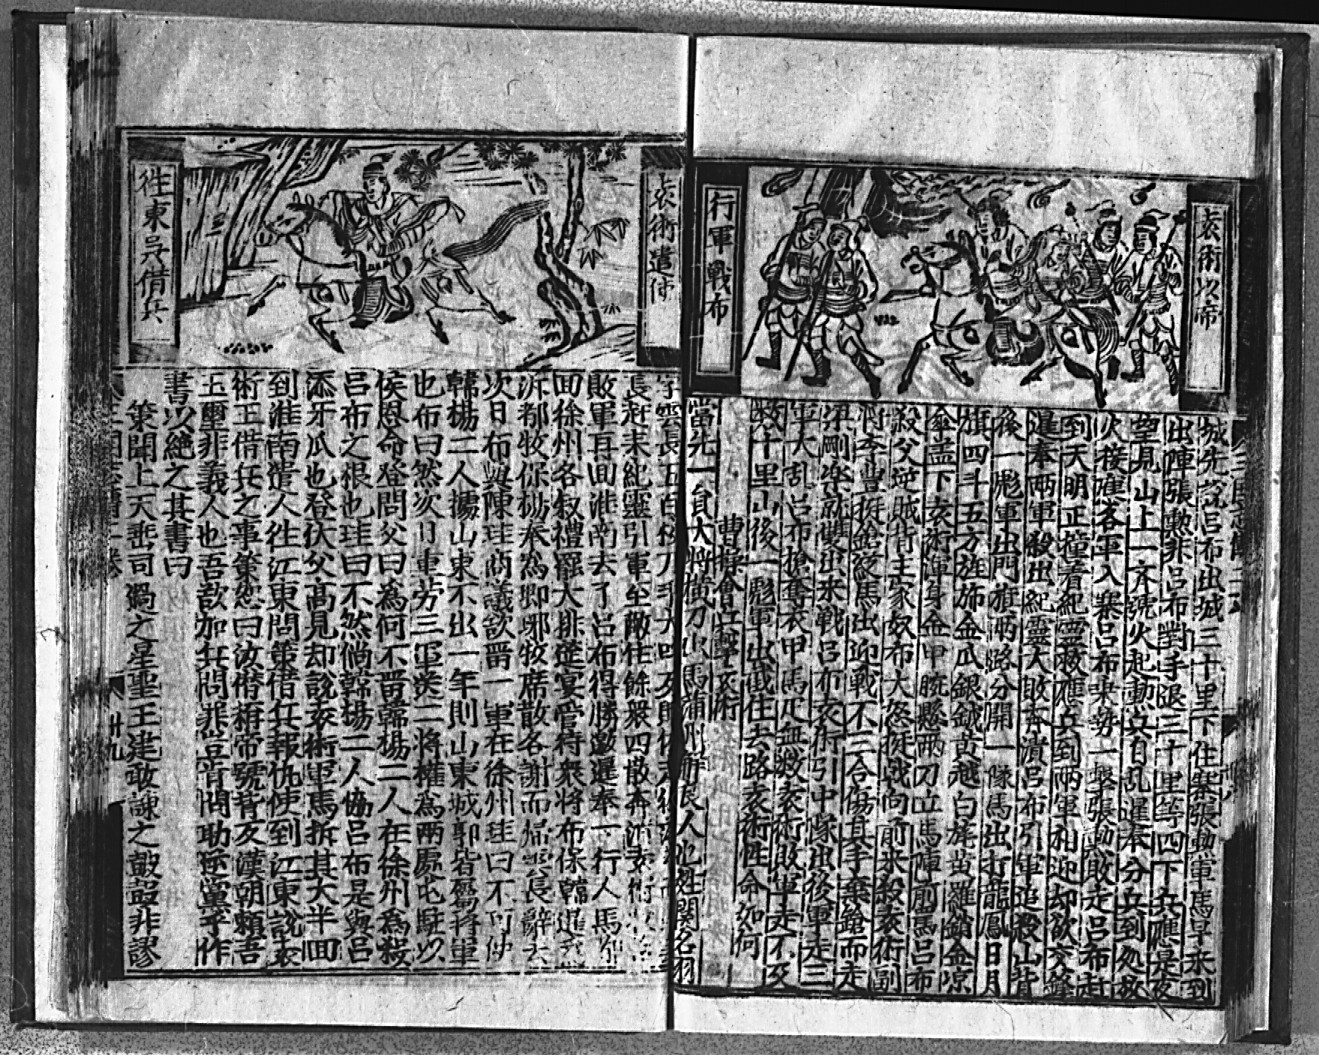 袁術以帝
行軍戰布
城先說呂布出城三十里下住寨張勳軍馬早來到
出陣張勳非呂布對手退三十里等四下兵應是夜
望見山上一齊號火起動兵自乱暹奉分兵到処放
火接應各軍入寨呂布乗勢一擊張勳敗走呂布赶
到天明正撞着紀靈救應兵到兩軍相迎却欲交鋒
暹奉兩軍殺出紀靈大敗奔潰呂布引軍追殺山背
後一彪軍出門旗兩路分開一隊馬出打龍鳳日月
旗四斗五方旌斾金瓜銀鉞黃越白旄黃羅銷金凉
傘盖下袁術渾身金甲腕懸兩刀立馬陣前罵呂布
殺父逆賊背主家奴布大怒挺戟向前來殺袁術副
將李豊挺鎗縱馬出迎戰不三合傷其手棄鎗而走
梁剛楽就雙出來戰呂布袁術引中隊出後軍走三
軍大乱呂布搶奪衣甲馬疋無数袁術敗軍走不及
数十里山後一彪軍出截住去路袁術性命如何
曹操會兵擊袁術
當先一員大將橫刀出馬蒲州解良人也姓關名羽
袁術遣使
徃東吳借兵
字雲長五百校刀手大
長赶来紀靈引軍至敵住餘衆四散奔
敗軍再回淮南去了呂布得勝邀暹奉一行人馬
回徐州各叙禮罷大排筵宴管待衆將布保韓暹爲
沂都牧保楊奉爲瑯琊牧席散各謝而歸雲長辭去
次日布與陳珪商議欲畱一軍在徐州珪曰不可
韓楊二人據山東不出一年則山東城郭皆屬將軍
也布曰然次日車劳三軍送二將權為兩處屯駐以
侯恩命登問父曰為何不畱韓楊二人在徐州爲殺
呂布之根也珪曰不然倘韓楊二人協呂布是與呂
添牙爪也登伏父高見却說袁術軍馬折其大半回
到淮南遣人徃江東問策借兵報仇使到江東說袁
術王借兵之事策怒曰汝僭稱帝號背反漢朝賴吾
玉璽非義人也吾欲加兵問罪豈肯閗助逆黨乎作
書以絶之其書曰
策聞上天垂司過之星聖王建敢諫之皷設非謬
卅九